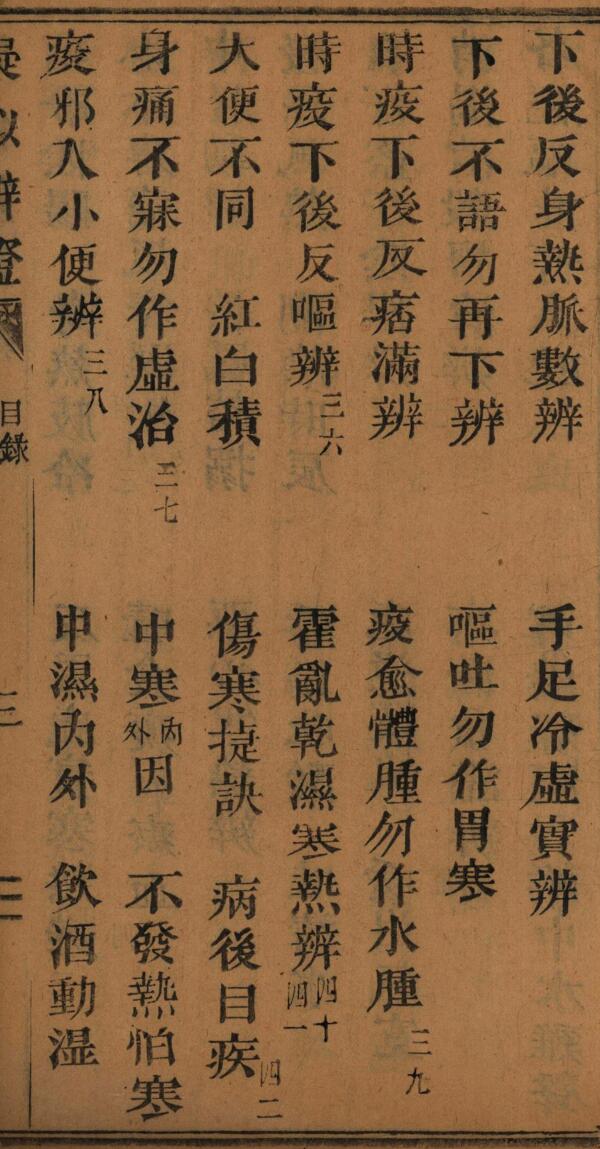 下後反身熱脈數辨
手足冷虛實辨
下後不語勿再下辨
嘔吐勿作胃寒
時疫下後反痞滿辨
疫愈體腫勿作水腫三九
時疫下後反嘔辨三六
霍亂乾濕寒熱辨四十四一
大便不同 紅白積
傷寒㨗訣 病後目疾四二
身痛不寐勿作虛治三七
中寒內外因 不發熱怕寒
疫邪入小便辨三八
中濕內外 飲酒動湿
疑似辨證 目錄 二